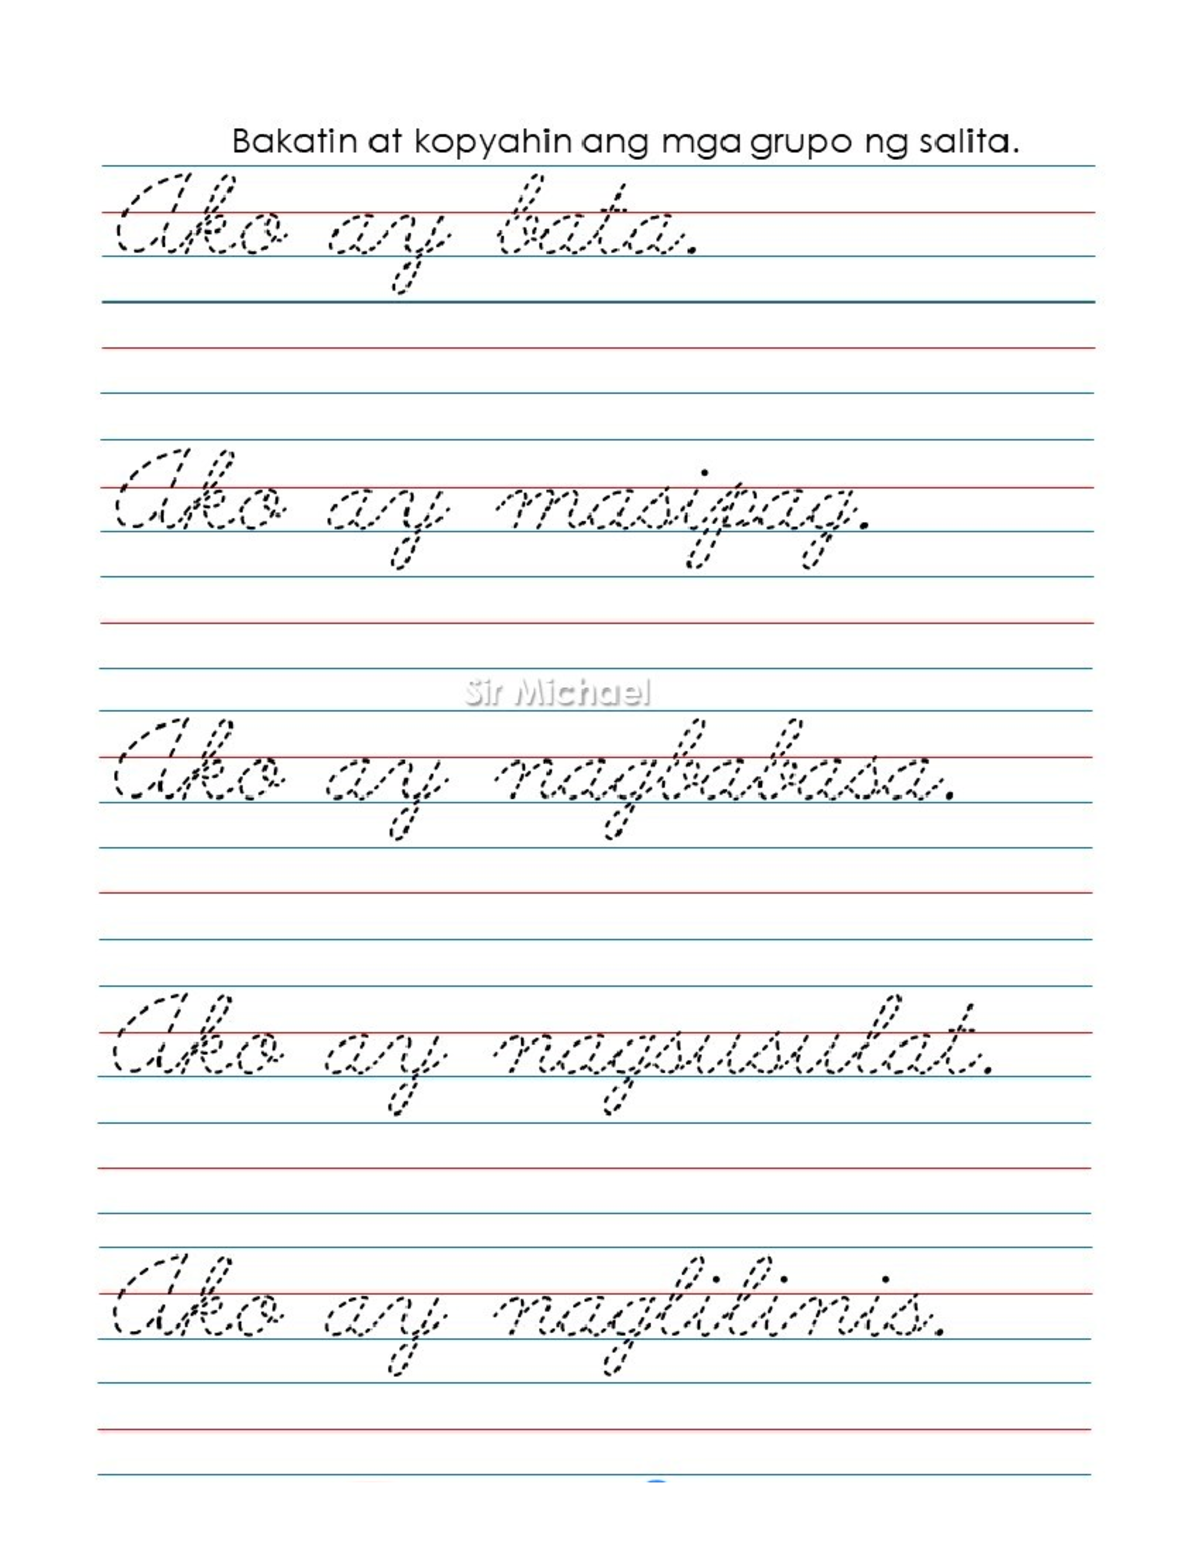 Bakatin at kopyahin ang mga grupo ng salita.
Ako ay bata.
Ako ay masipag.
Sir Michael
Ako ay nagbabasa.
Ako ay nagsusulat.
Ako ay naglilinis.